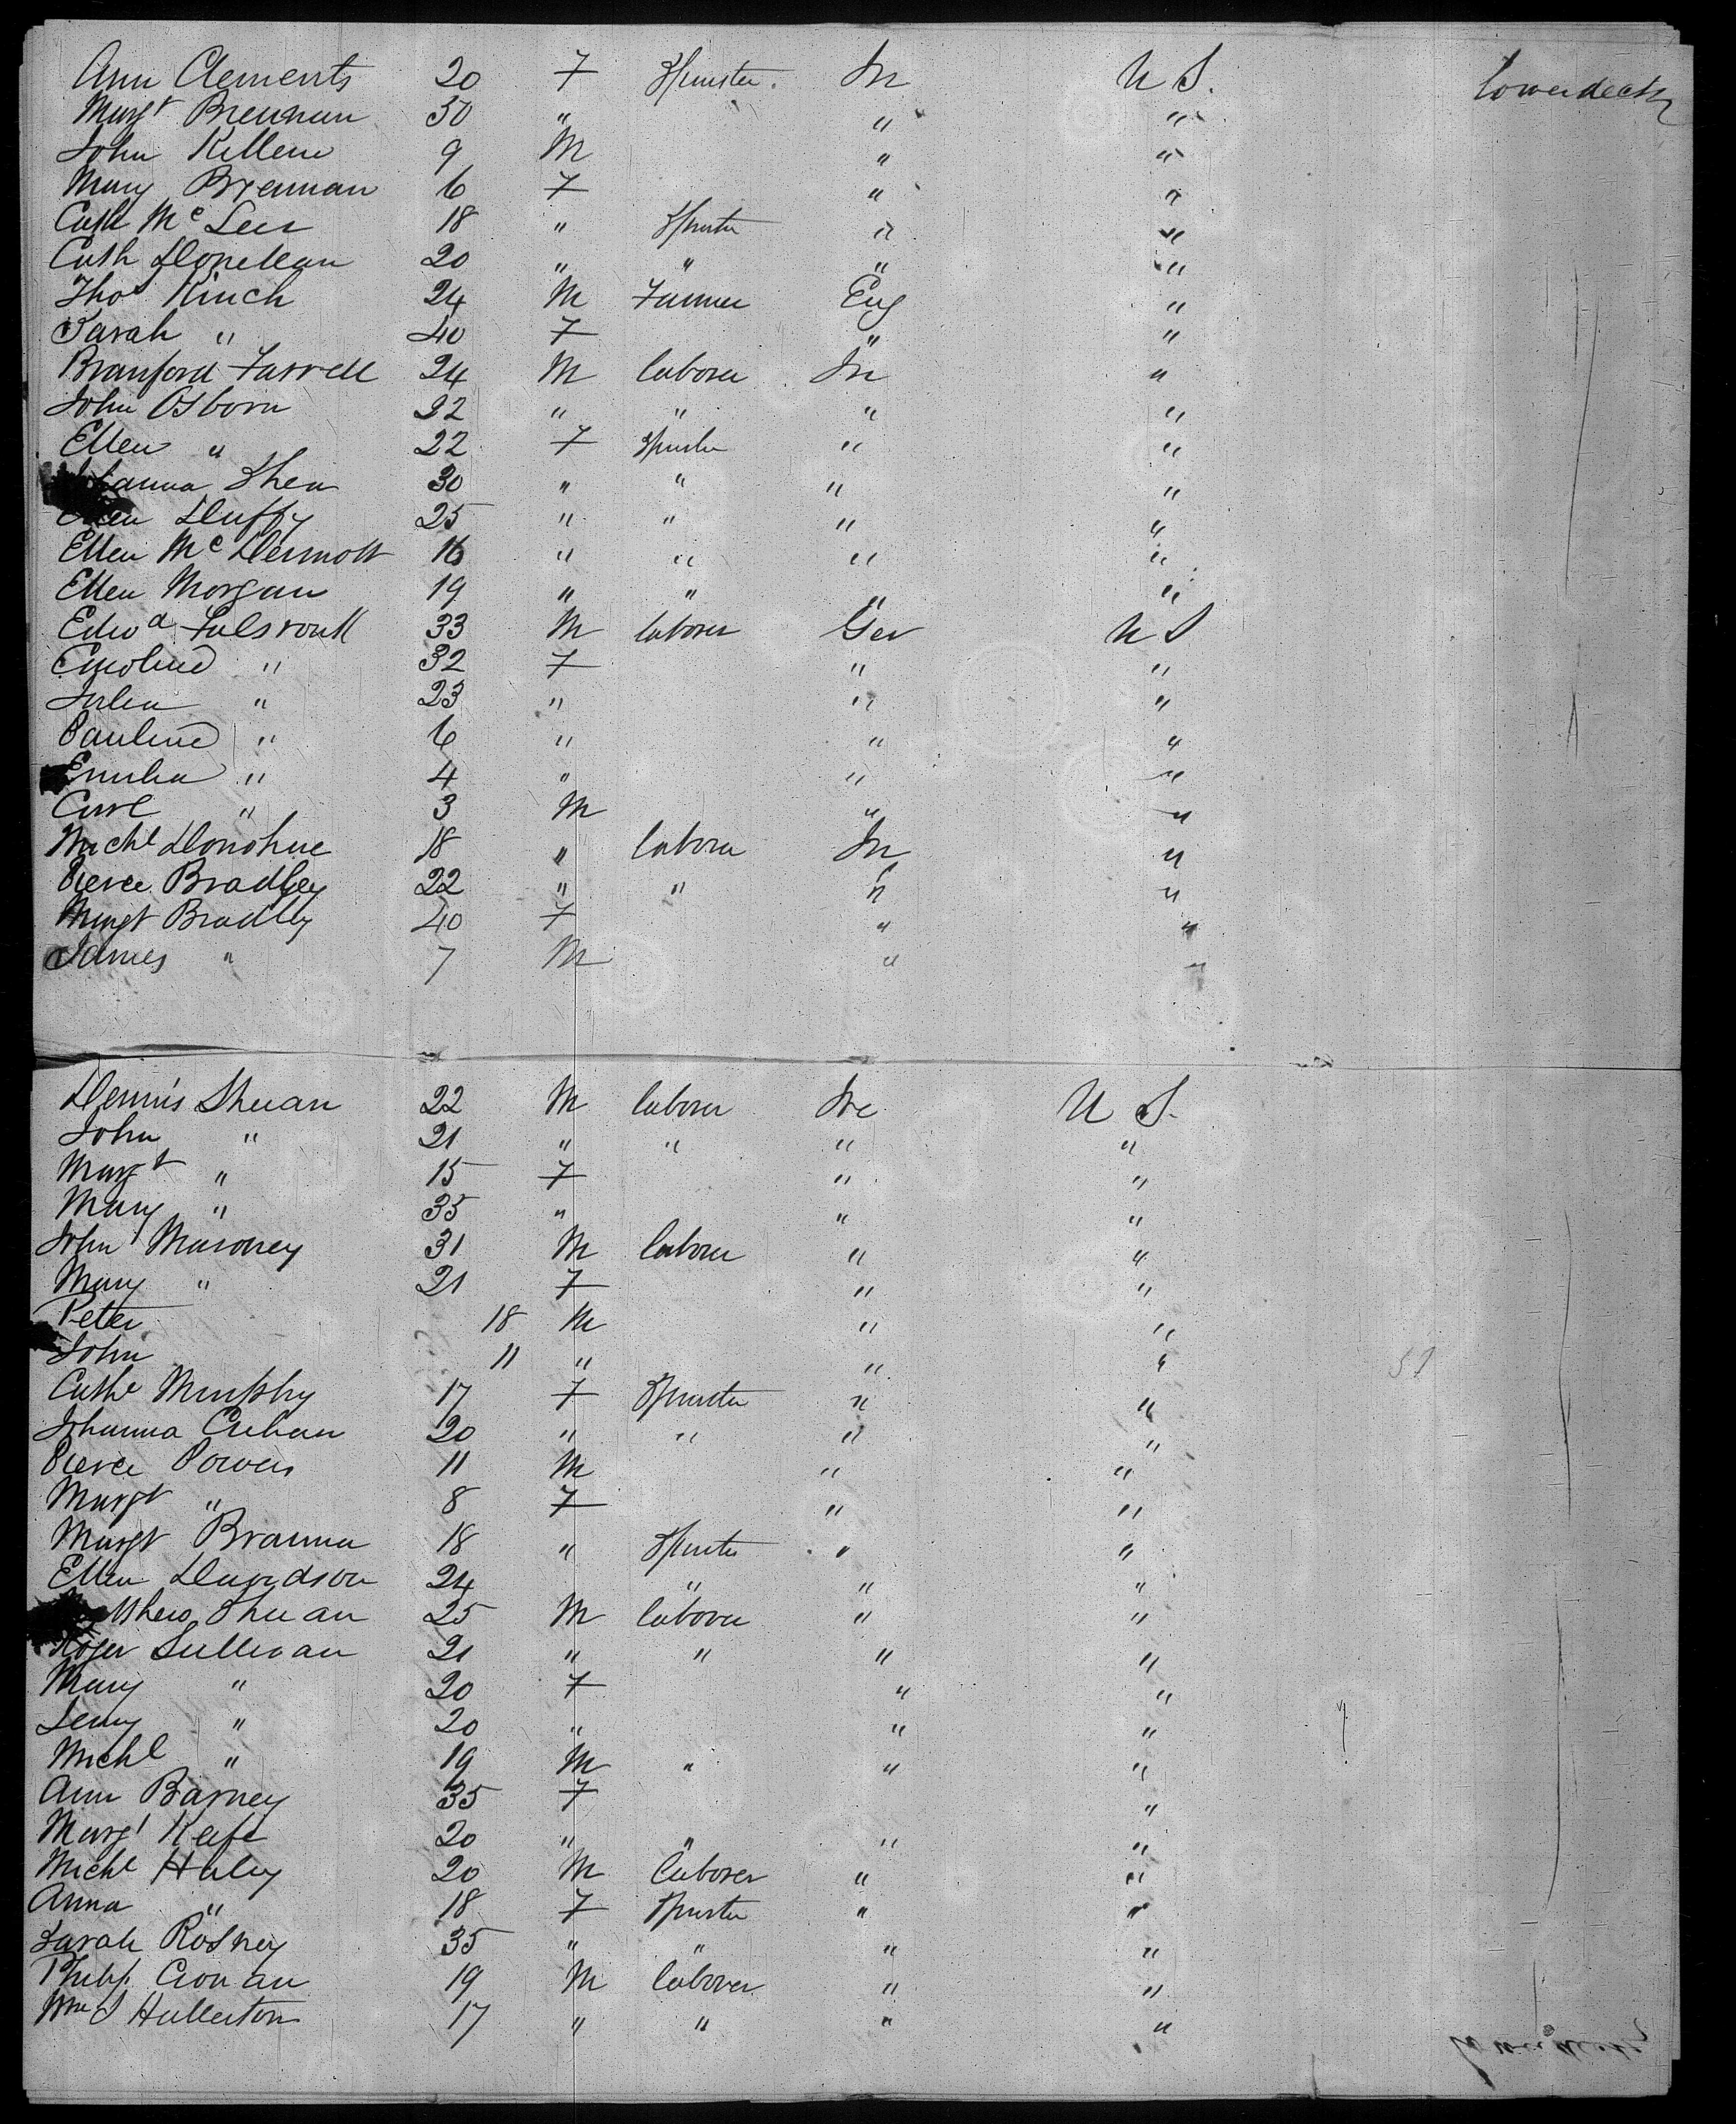 Ann Clements 20 F Spinster Ir U S. Lowerdeck
Margt Brennan 30 " " "
John Killene 9 M " "
Mary Brennan 6 F " "
Cath Mc Lees 18 " Spinster " "
Cath Donellan 20 " " " "
Thos Kinch 24 M Farmer Eng "
Sarah " 40 F " "
Branford Farrell 24 M laborer Ir "
John Osborn 22 " " " "
Ellen " 22 F Spinster " "
Johanna Shea 30 " " " "
Ellen Duffy 25 " " " "
Ellen Mc Dermott 16 " " " "
Ellen Morgan 19 " " " "
Edwd 33 M laborer Ger U S
Caroline " 32 F " "
Julia " 23 " " "
Pauline " 6 " " "
Emilia " 4 " " "
Carl " 3 M " "
Michl Donohue 18 " laborer Ir "
Pierce Bradley 22 " " " "
Margt Bradley 40 F " "
James " 7 M " "
Dennis Shuan 22 M laborer Ire U S.
John " 21 " " " "
Margt " 15 F " "
Mary " 35 " " "
John Maroney 31 M laborer " "
Mary " 21 F " "
Peter 18 M " "
John 11 " " "
Cathe Murphy 17 F Spinster " "
Johanna Crehan 20 " " " "
Pierce Powers 11 M " "
Margt " 8 F " "
Margt Branna 18 " Spinster " "
Ellen Davidson 24 " " "
Shuan 25 M laborer " "
Roger Sullivan 21 " " " "
Mary " 20 F " "
Jenny " 20 " " "
Michl " 19 M " " "
Ann Barney 35 F "
Margt Keefe 20 " " " "
Michl Haley 20 M laborer " "
Anna " 18 F Spinster " "
Sarah Rosney 35 " " " "
Philip Cronan 19 M laborer " "
Wm J Hullerton 17 " " " "